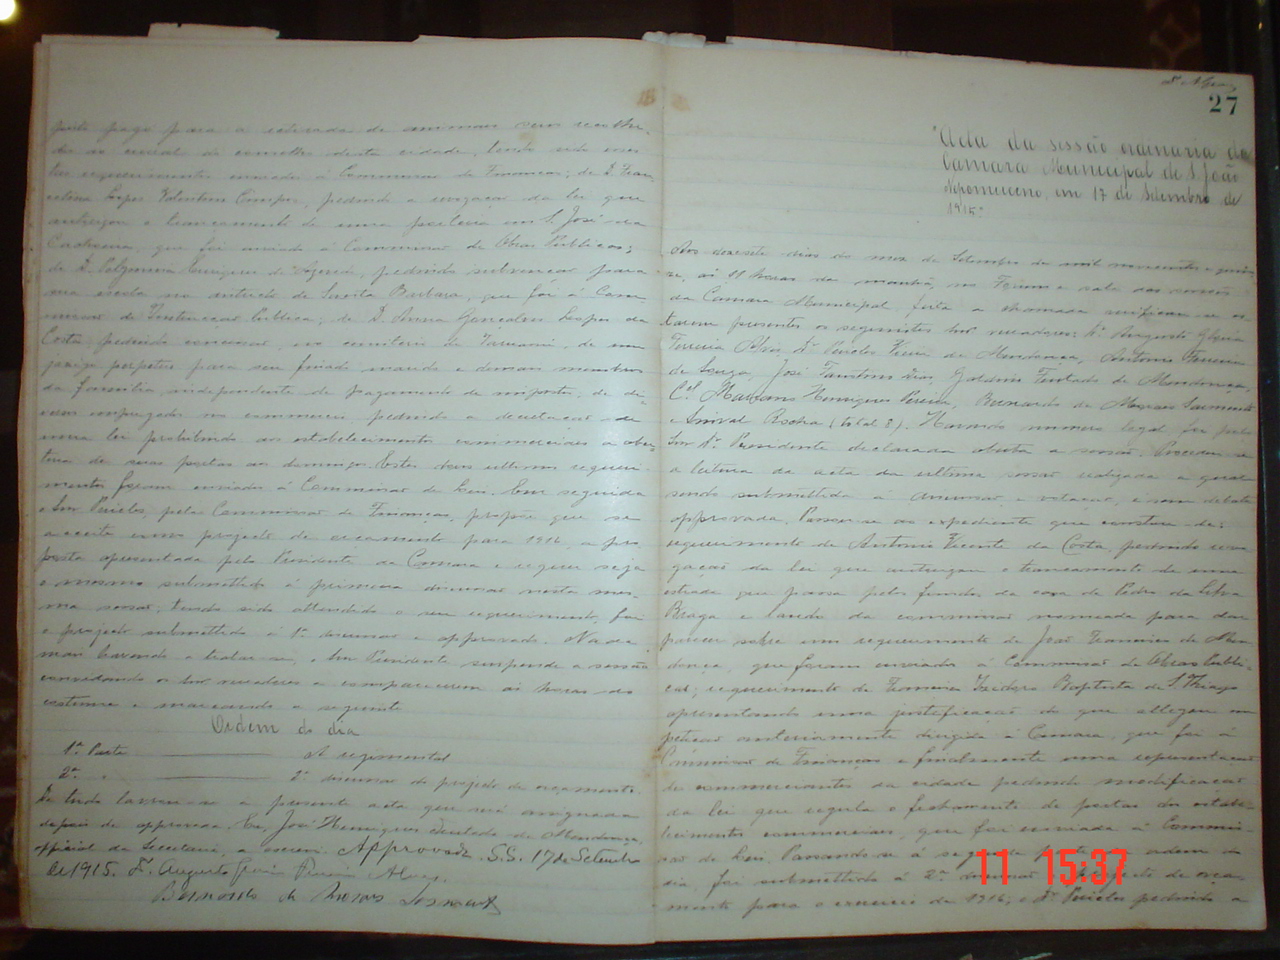 posto pago para a retirada de animaes sem recolhe-
do ao curral do conselho desta cidade, tendo sido esses
requerimentos enviados á Commissão de Finanças; de D. Fran-
Lopes Valentim, pedindo a revogação da lei que
o trancamento de uma porteira em S. José da
Cachoeira, que foi enviado á Commissão de Obras Publicas;
de D. de Azevedo, pedindo subvenção para
sua escola no districto de Santa Barbara, que foi á Com-
missão de Instrucção Publica; de D. Anna Gonçalves Lopes da
Costa pedindo concessão, no cemiterio de Taruassú, de um
jazigo perpetuo para seu finado marido e demais membros
da familia, independente de pagamento de imposto; de di-
versos empregados no commercio pedindo a decretação de
uma lei prohibindo aos estabelecimentos commerciaes a aber-
tura de suas portas aos domingos. Estes dous ultimos requeri-
mentos foram enviados á Commissão de Leis. Em seguida
o Snr Pericles, pela Commissão de Finanças, propõe que se
acceite como projecto de orçamento para 1916, a pro-
posta apresentada pelo Presidente da Camara e requer seja
o mesmo submettido á primeira discussão nesta mes-
ma sessão; tendo sido attendido o seu requerimento, foi
o projecto submettido á 1ª discussão e approvado. Nada
mais havendo a tratar-se, o Snr Presidente suspende a sessão
convidando os Snr vereadores a comparecerem ás horas do
costume e marcando a seguinte
Ordem do dia
1ª Parte A regimental
2ª " 2ª discussão do projecto de orçamento.
De tudo lavrou-se a presente acta que será assignada
depois de approvada. Eu, José Henriques Furtado de Mendonça,
official da Secretaria, a escrevi. Approvada. S.S. 17 de Setembro
de 1915. Dr. Augusto Gloria Ferreira Alves.
Bernardo de Moraes Sarmento
27
Acta da sessão ordinaria da
Camara Municipal de S. João
Nepomuceno, em 17 de Setembro de
1915.
Aos dezesete dias do mez de Setembro de mil novecentos e quin-
ze, ás 11 horas da manhã, no Forum e sala das sessões
da Camara Municipal, feita a chamada verificou-se es-
tarem presentes os seguintes Snr vereadores: Dr. Augusto Gloria
Ferreira Alves, Dr. Pericles Vieira de Mendonça, Antonio Ferreira
de Souza, José Faustino Dias, Galdino Furtado de Mendonça,
Cel. Marciano Henriques Pereira, Bernardo de Moraes Sarmento
e Anival Rocha (total 8). Havendo numero legal, foi pelo
Snr Dr. Presidente declarada aberta a sessão. Procedeu-se
a leitura da acta da ultima sessão realizada a qual
sendo submettida á discussão e votação, é sem debate
approvada. Passou-se ao expediente que constou de:
requerimento de Antonio Vicente da Costa, pedindo revo-
gação da lei que o trancamento de uma
estrada que passa pelos fundos da casa de Pedro da Silva
Braga e laudo da commissão nomeada para dar
parecer sobre um requerimento de João de Men-
donça, que foram enviados á Commissão de Obras Publi-
cas; requerimento de Izidora Baptista de S. Thiago
apresentando uma justificação do que allegou em
petição anteriormente dirigida á Camara que foi á
Commissão de Finanças e finalmente uma representação
de commerciantes da cidade pedindo modificação
da lei que regula o fechamento de portas dos estabe-
lecimentos commerciaes, que foi enviada á Commis-
são de Leis. Passando-se á segunda parte da ordem do
dia, foi submettido á 2ª discussão o projecto de orça-
mento para o exercicio de 1916; o Dr. Pericles pedindo a
11 15:37